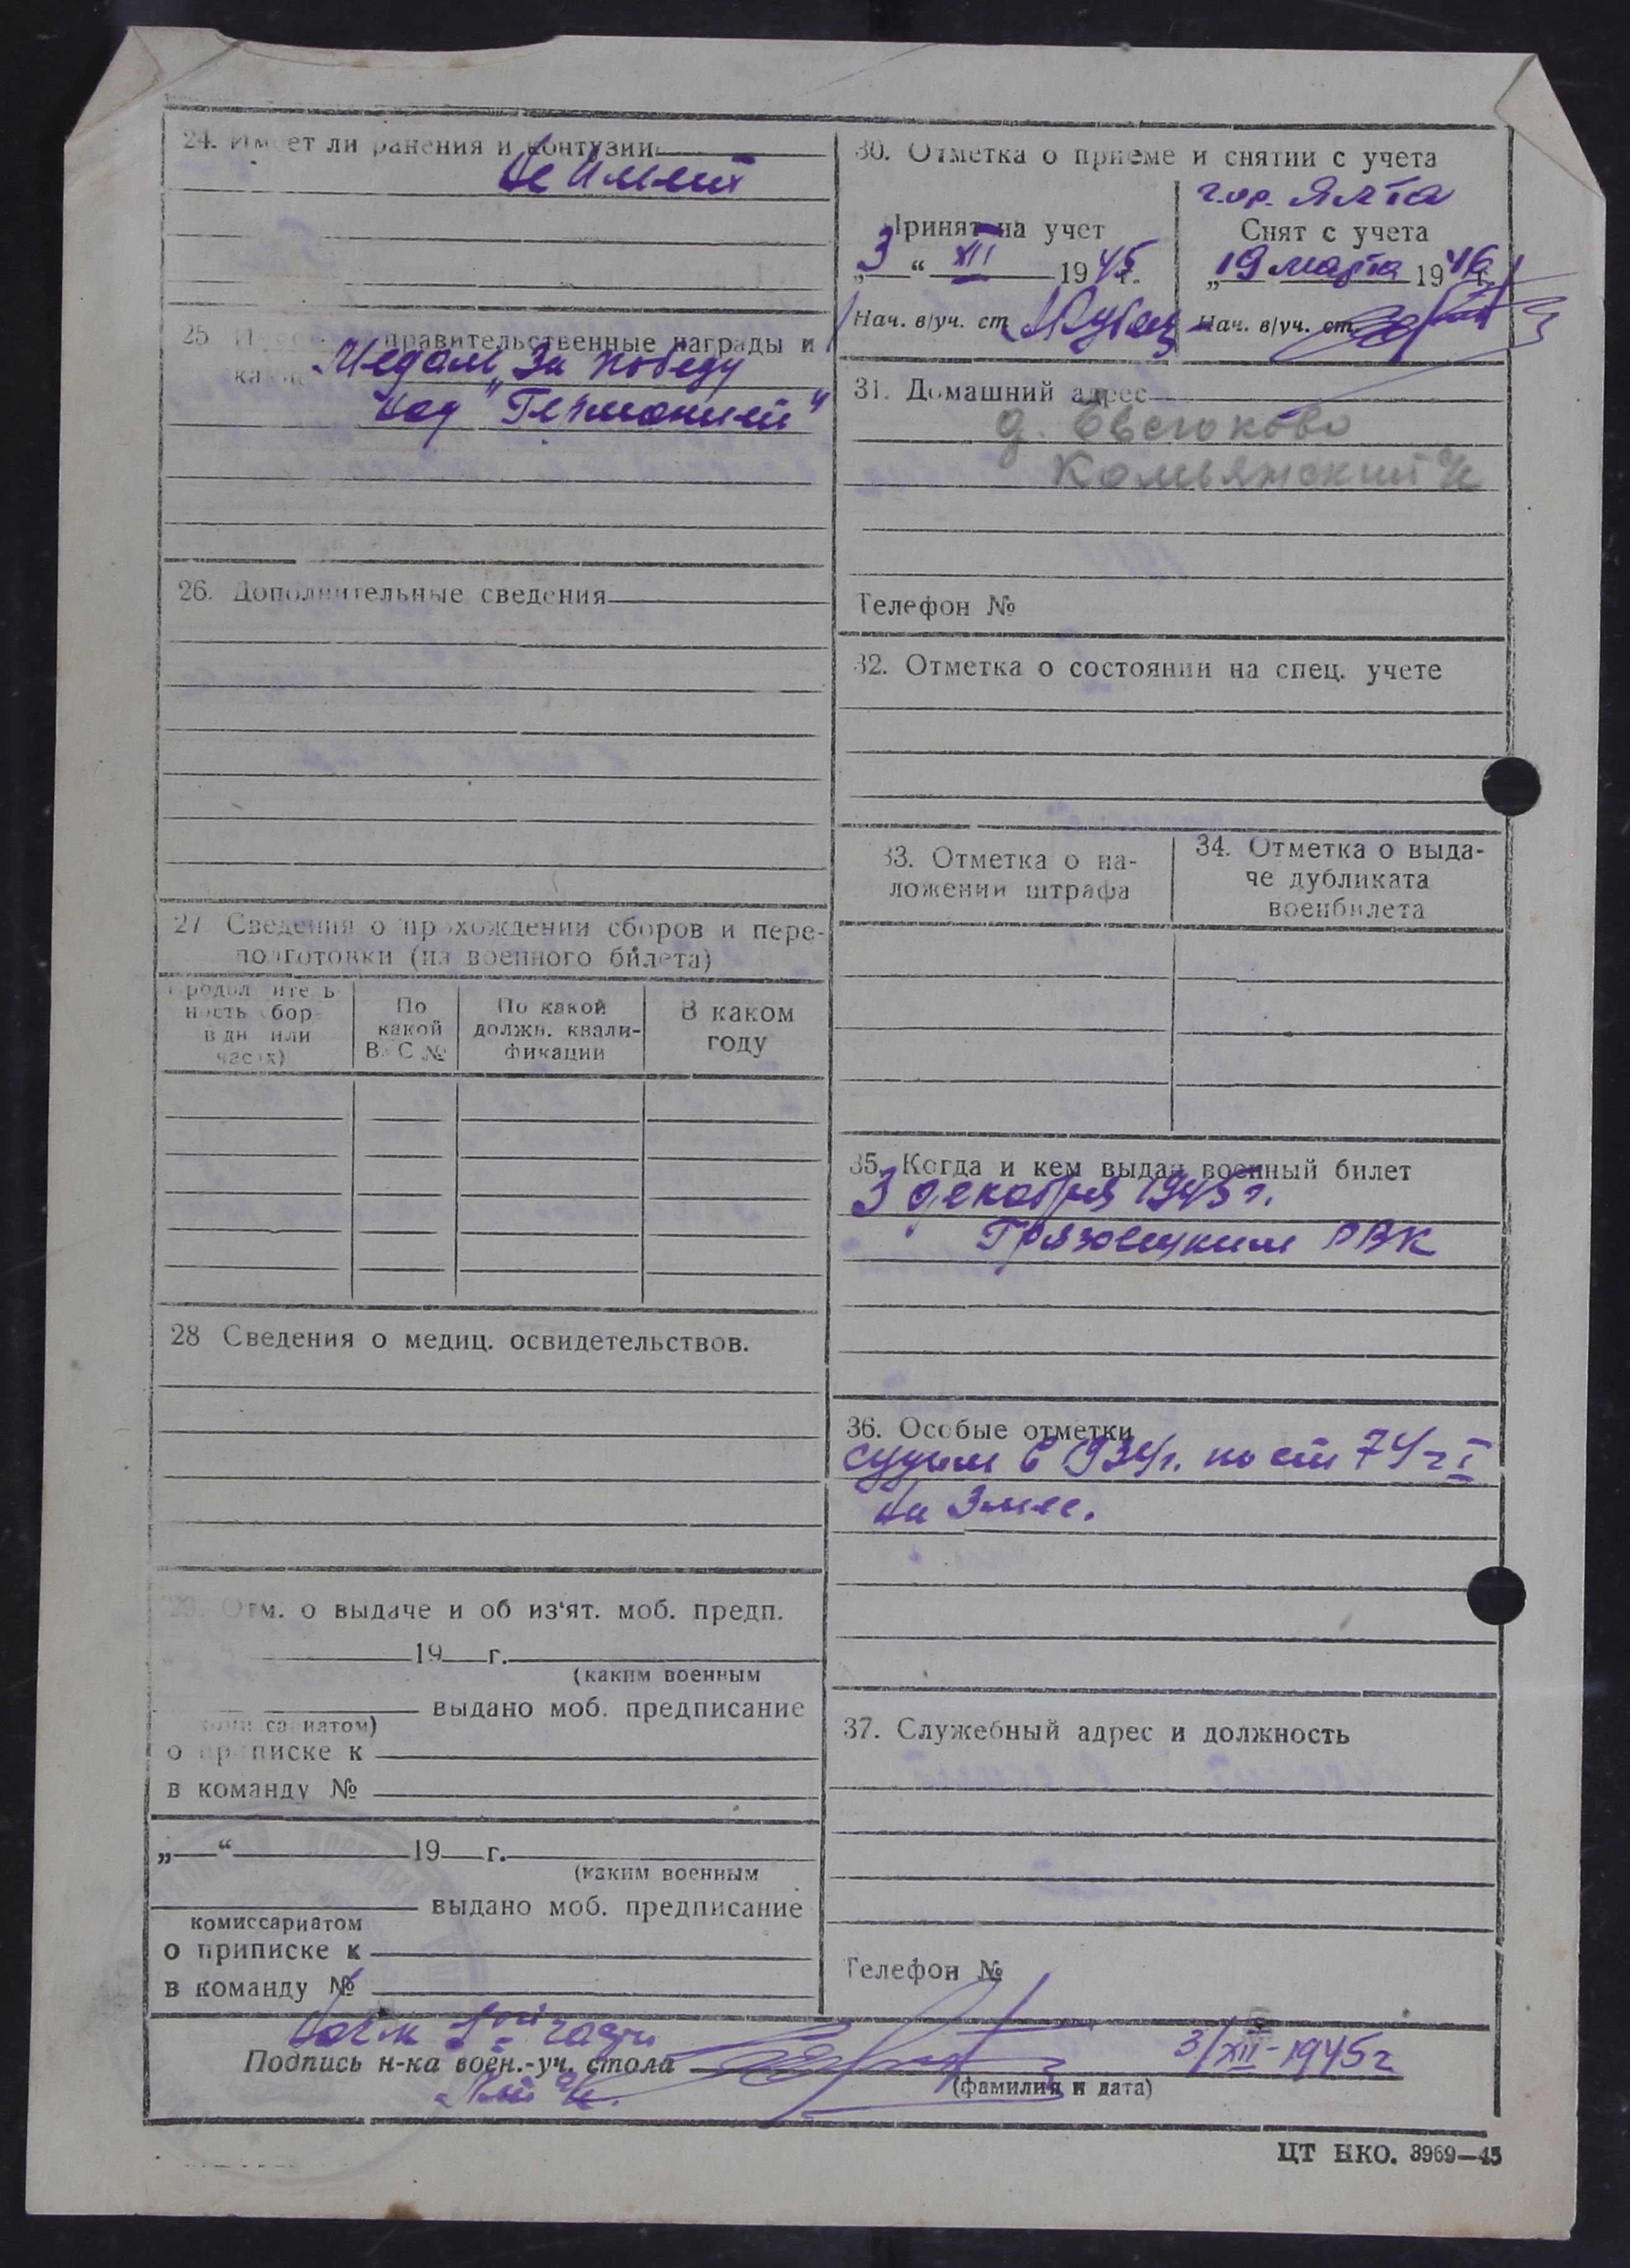 24. Имеет ли ранения и контузии
Не имеет
25 правительственные награды и
Медаль „За победу
над "Германией"
26. Дополнительные сведения
27 Сведения о прохождении сборов и пере-
подготовки (из военного билета)
Продолжитель-
ность сбор.
в дн или
часах)
По
какой
ВУС №
По какой
должн. квали-
фикации
В каком
году
28 Сведения о медиц. освидетельствов.
29. Отм. о выдаче и об из'ят. моб. предп.
19 г.
(каким военным
выдано моб. предписание
комиссариатом)
о приписке к
в команду №
„ “ 19 г.
(каким военным
выдано моб. предписание
комиссариатом
о приписке к
в команду №
30. Отметка о приеме и снятии с учета
гор. Ялта
Принят на учет
„3“ XII 1945 г.
Нач. в/уч. ст.
Снят с учета
„19 марта 1946 г.
Нач. в/уч. ст.
31. Домашний адрес
д. Евсюково
Комьянский с/с
Телефон №
32. Отметка о состоянии на спец. учете
33. Отметка о на-
ложении штрафа
34. Отметка о выда-
че дубликата
военбилета
35. Когда и кем выдан военный билет
3 декабря 1945 г.
Грязовецким РВК
36. Особые отметки
судим в 1934 г. по ст 74 ч I
на 3 мес.
37. Служебный адрес и должность
Телефон №
Нач 1ой части
Подпись н-ка воен.-уч. стола
3/XII-1945 г
(фамилия и дата)
ЦТ НКО. 3969—45